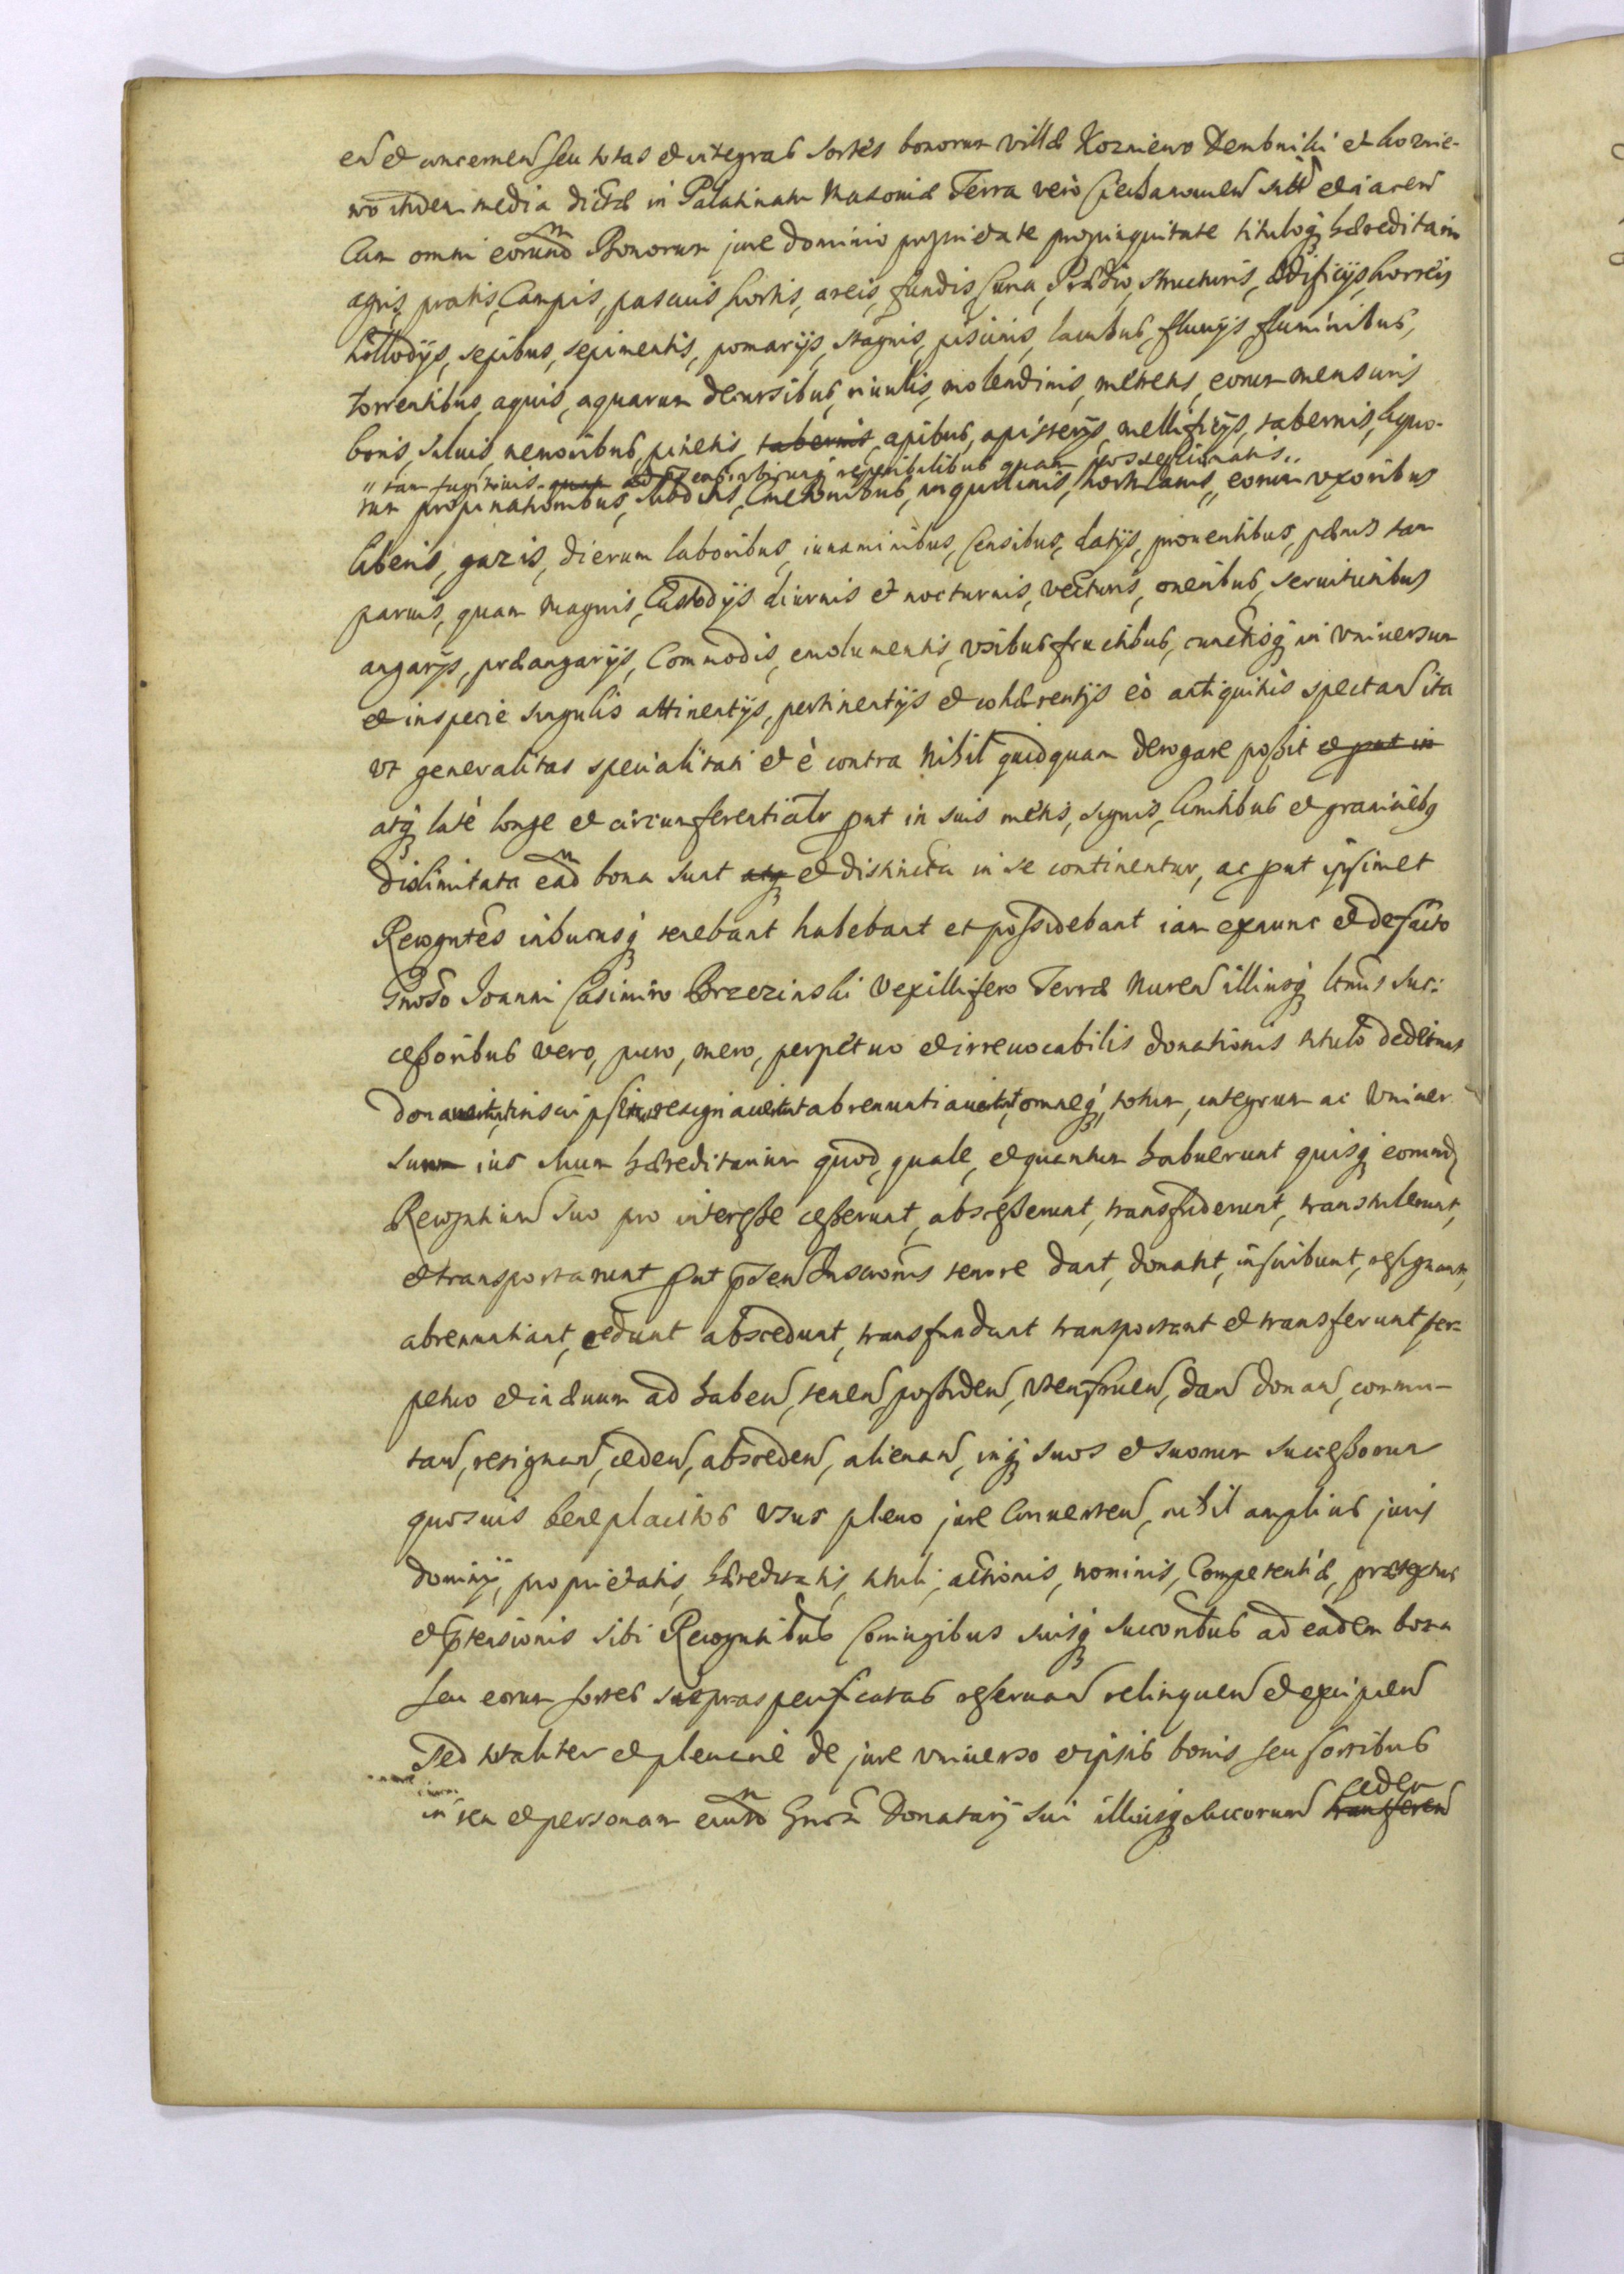 en et concernen seu totas et integras sortes bonorum villæ Kozniewo Dembniki et Koznie-
wo itidem media dictæ in Palatinatu Masoniæ Terra vero Ciechanouien sitt et iacen
Cum omni eorund Bonorum jure dominio proprietate propinquitate tituloq hæreditario
agris, pratis, Campis, pascuis, hortis, areis, fundis, Curia, Prædio, structuris, ædificijs, horreis
sepibus, sepimentis, pomarijs, stagnis, piscinis, lacubus, fluuijs fluminibus,
torrentibus, aquis, aquarum decursibus, riuulis, molendinis, metretis, eorum mensuris
boris, siluis, nemoribus, pinetis, tabernis, apibus, apisterijs, mellificijs, tabernis, liquo-
"tam fugitiuis quam ad præsens vbiuis reperibilibus quam possessionatis"
rum propinationibus, subditis, Cmethonibus, inquilinis, hortulanis, eorum vxoribus
liberis, gazis, dierum laboribus, iuuaminibus, Censibus, datijs, prouentibus, pænis tam
paruis, quam magnis, Custodijs diurnis et nocturnis, vecturis, oneribus, seruitutibus
angarijs, præangarijs, Commodis, emolumentis, vsibusfructibus, cunctisq in vniuersum
et in specie singulis attinentijs, pertinentijs et cohærentijs eo antiquitus spectan ita
vt generalitas specialitati et è contra nihil quidquam derogare possit et prut in
atq late longe et circumferentialr prut in suis metis, signis, limitibus et graniciebq
dislimitata ead bona sunt atq et distincta in se continentur, ac prut ipsimet
Recogntes inhucusq tenebant habebant et possidebant iam exnunc et defacto
Gnoso Joanni Casimiro Brzezinski Vexillifero Terræ Nuren illiusq ltmis suc:
cessoribus vero, puro, mero, perpetuo et irreuocabilis donationis titulo dederunt
donauerunt, inscripserunt resignauerunt abrenuntiauerunt omneq, totum, integrum ac vniuer
sum ius suum hæreditarium quod, quale, et quantum habuerunt quisq eorund
Recogntium suo pro interesse cesserunt, abscesserunt, transfuderunt, transtulerunt,
et transportarunt prut pnten Inscronis tenore dant, donant, inscribunt, resignant,
abrenuntiant, cedunt abscedunt, transfundunt transportant et transferunt per=
petuo et in æuum ad haben, tenen, possiden, vten fruen, dan donan, commu-
tan, resignan, ceden, absceden, alienan, inq suos et suorum successorum
quosuis beneplacitos vsus pleno jure Conuerten, nihil amplius juris
dominij, proprietatis, hæreditatis, tituli, actionis, nominis, Competentiæ, prætextus
et prtensionis sibi Recogntibus Coniugibus suisq succoribus ad eadem bona
seu eorum sortes supraspecificatas reseruan relinquen et excipien
Sed totaliter et plenarie de jure vniuerso et ipsis bonis seu sortibus
in rem et personam eiusd Gnosi Donatarij sui illiusq succorum transferen
ceden